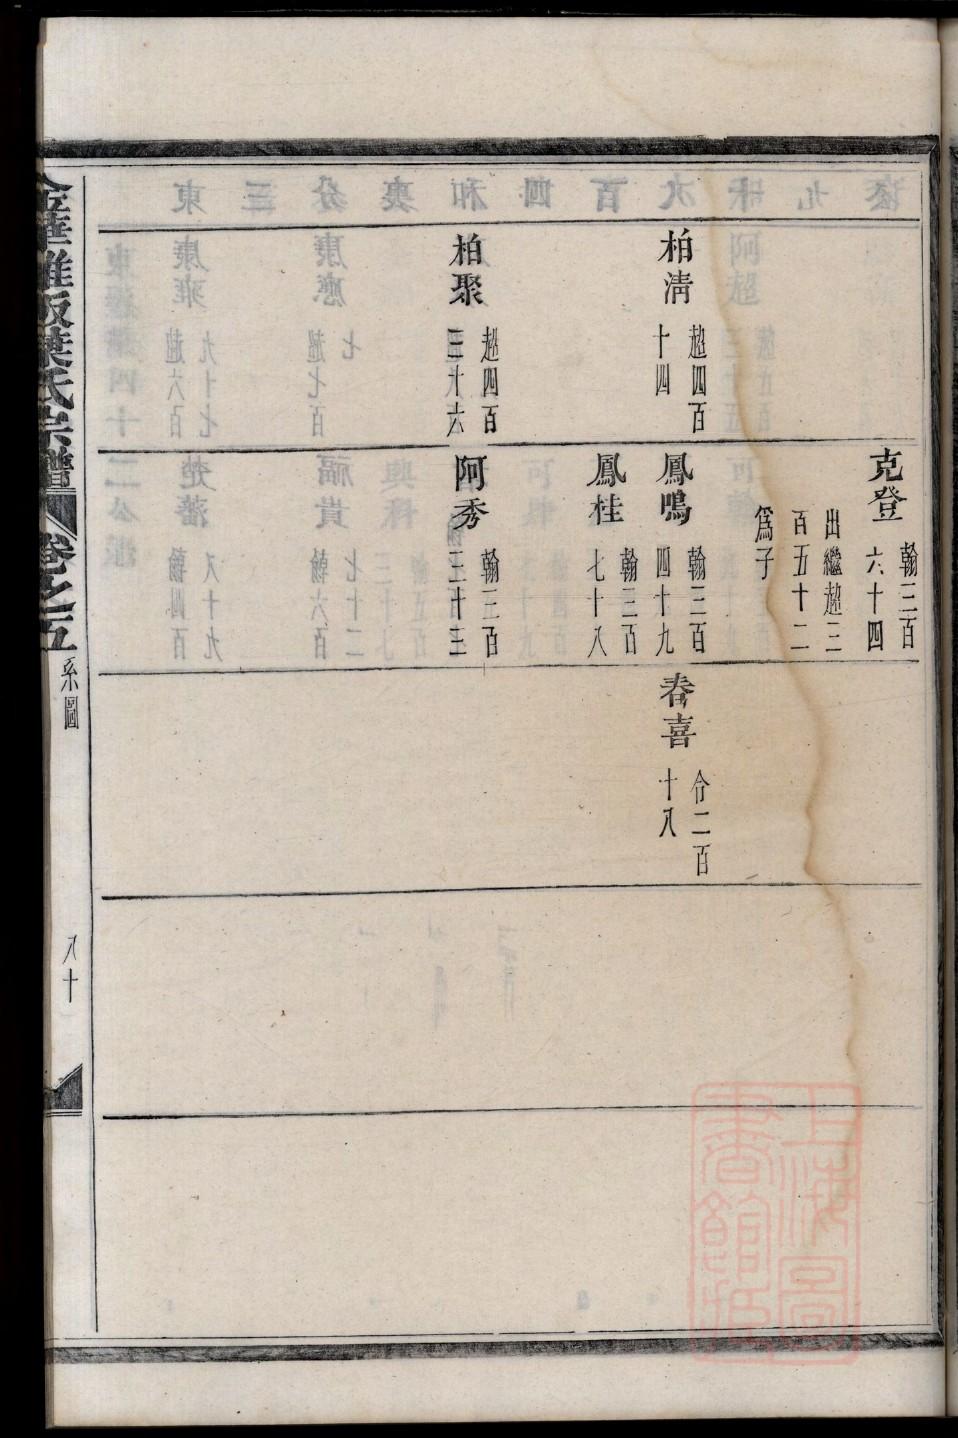 柏清
超四百
十四
柏聚
超四百
三十六
克登
翰三百
六十四
出繼超三
百五十二
爲子
鳳鳴
翰三百
四十九
鳳桂
翰三百
七十八
阿秀
翰三百
三十三
春喜
令二百
十八
葉氏宗譜
卷之五
系圖
八十
上海圖書館藏